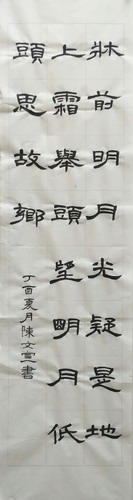 牀前明月光疑是地
上霜舉頭望明月低
頭思故鄉
丁酉夏月陳文宣書